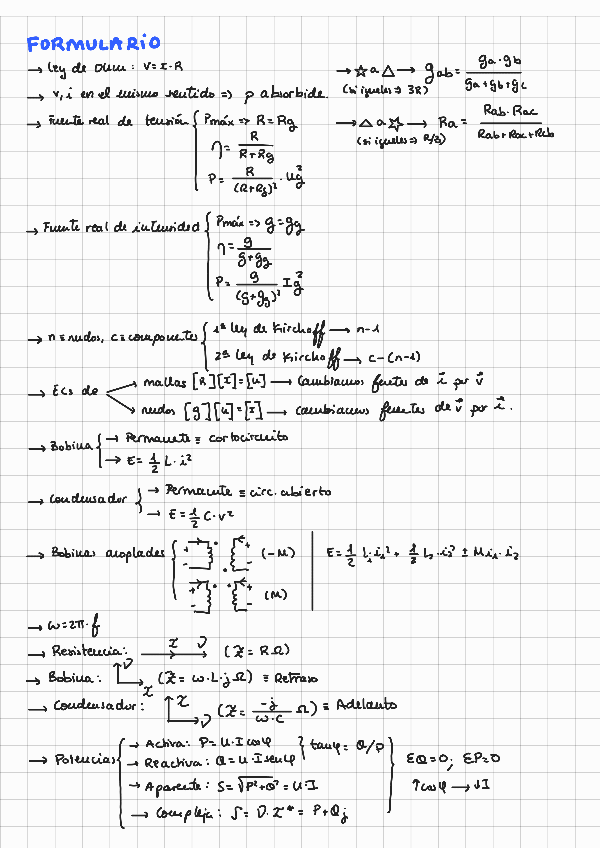 FORMULARIO
→ Ley de Ohm: V=I·R
→ ☆ a △ → gab = ga·gb / ga+gb+gc
(si iguales ⇒ 3R)
→ v,i en el mismo sentido => p absorbida.
→ Fuente real de tensión { Pmáx => R=Rg
η = R / R+Rg
P = R / (R+Rg)² · Ug²
→ △ a ☆ → Ra = Rab·Rac / Rab+Rac+Rcb
(si iguales => R/3)
→ Fuente real de intensidad { Pmáx => g=gg
η = g / g+gg
P = g / (g+gg)² Ig²
→ n≡nudos, c≡componentes { 1ª ley de Kirchoff → n-1
2ª ley de Kirchoff → c-(n-1)
→ Ecs de mallas [R][I]=[U] → Cambiamos fuentes de i por v
nudos [g][u]=[I] → cambiamos fuentes de v por i.
→ Bobina { → Permanente ≡ cortocircuito
→ E= 1/2 L·i²
→ Condensador { → Permanente ≡ circ. abierto
→ E= 1/2 C·v²
→ Bobinas acopladas { + - + - (-M)
+ - + - (M)
E= 1/2 L₁·i₁² + 1/2 L₂·i₂² ± M i₁·i₂
→ ω=2π·f
→ Resistencia: I V (Z = R Ω)
→ Bobina: V I (Z = ω·L·j Ω) ≡ Retraso
→ Condensador: I V (Z = -j / ω·C Ω) ≡ Adelanto
→ Potencias { → Activa: P=U·I cosφ } tanφ = Q/P
→ Reactiva: Q=U·I senφ
→ Aparente: S=√P²+Q² = U·I
→ Compleja: S = U·I* = P+Qj
ΣQ=0; ΣP=0
↑cosφ → ↓I